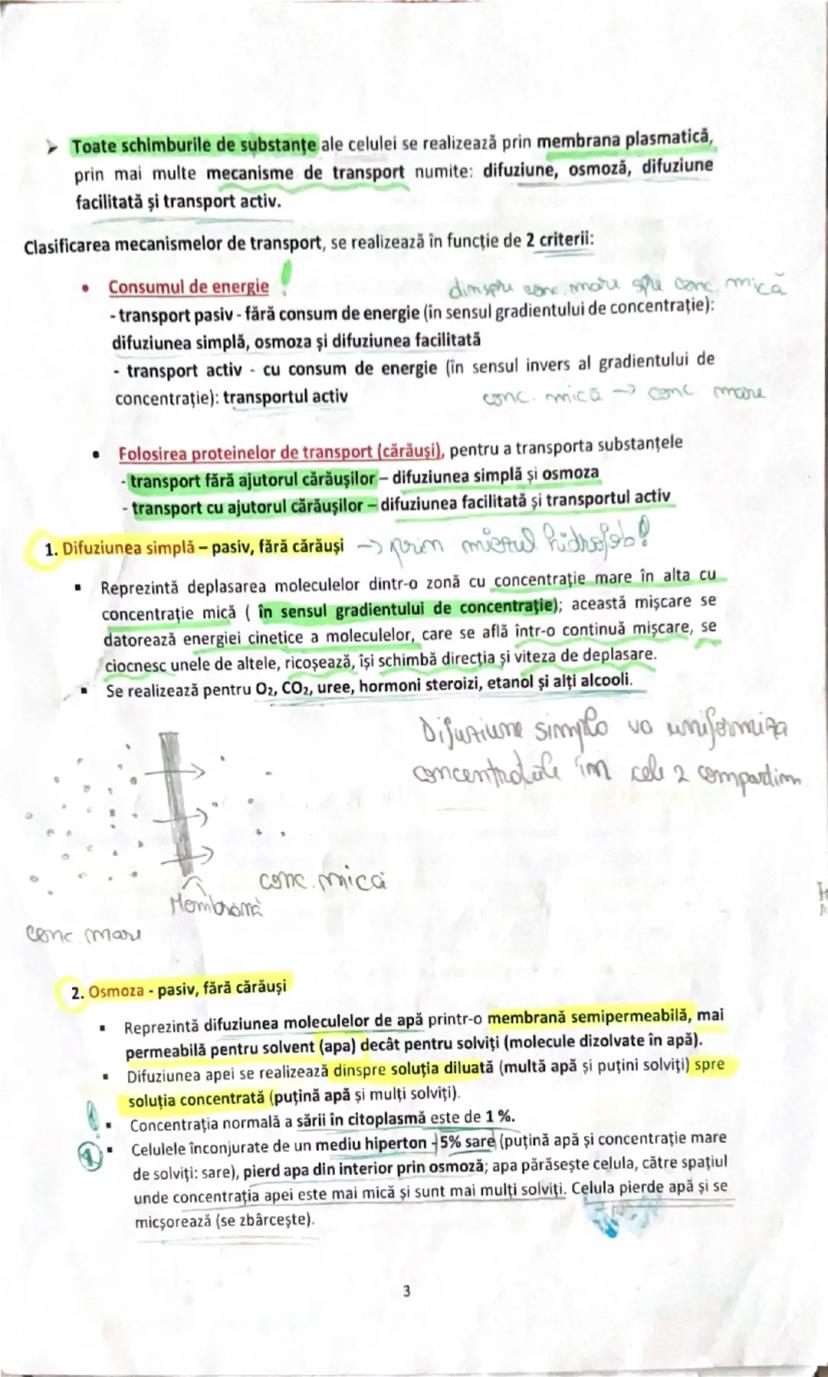 ➤ Toate schimburile de substanțe ale celulei se realizează prin membrana plasmatică,
prin mai multe mecanisme de transport numite: difuziune, osmoză, difuziune
facilitată și transport activ.
Clasificarea mecanismelor de transport, se realizează în funcție de 2 criterii:
• Consumul de energie !
dinspre conc. mare spre conc. mică
- transport pasiv - fără consum de energie (în sensul gradientului de concentrație):
difuziunea simplă, osmoza și difuziunea facilitată
- transport activ - cu consum de energie (în sensul invers al gradientului de
concentrație): transportul activ conc. mică → conc mare
• Folosirea proteinelor de transport (cărăuși), pentru a transporta substanțele
- transport fără ajutorul cărăușilor – difuziunea simplă și osmoza
- transport cu ajutorul cărăușilor – difuziunea facilitată și transportul activ
1. Difuziunea simplă – pasiv, fără cărăuși → prin miezul hidrofob!
▪ Reprezintă deplasarea moleculelor dintr-o zonă cu concentrație mare în alta cu
concentrație mică ( în sensul gradientului de concentrație); această mișcare se
datorează energiei cinetice a moleculelor, care se află într-o continuă mișcare, se
ciocnesc unele de altele, ricoșează, își schimbă direcția și viteza de deplasare.
▪ Se realizează pentru O₂, CO₂, uree, hormoni steroizi, etanol și alți alcooli.
Difuziune simpla va uniformiza
concentratiile in cele 2 compartim
conc. mică
Membrană
conc. mare
2. Osmoza - pasiv, fără cărăuși
▪ Reprezintă difuziunea moleculelor de apă printr-o membrană semipermeabilă, mai
permeabilă pentru solvent (apa) decât pentru solviți (molecule dizolvate în apă).
▪ Difuziunea apei se realizează dinspre soluția diluată (multă apă și puțini solviți) spre
soluția concentrată (puțină apă și mulți solviți).
! ▪ Concentrația normală a sării în citoplasmă este de 1 %.
1 ▪ Celulele înconjurate de un mediu hiperton - 5% sare (puțină apă și concentrație mare
de solviți: sare), pierd apa din interior prin osmoză; apa părăsește celula, către spațiul
unde concentrația apei este mai mică și sunt mai mulți solviți. Celula pierde apă și se
micșorează (se zbârcește).
3